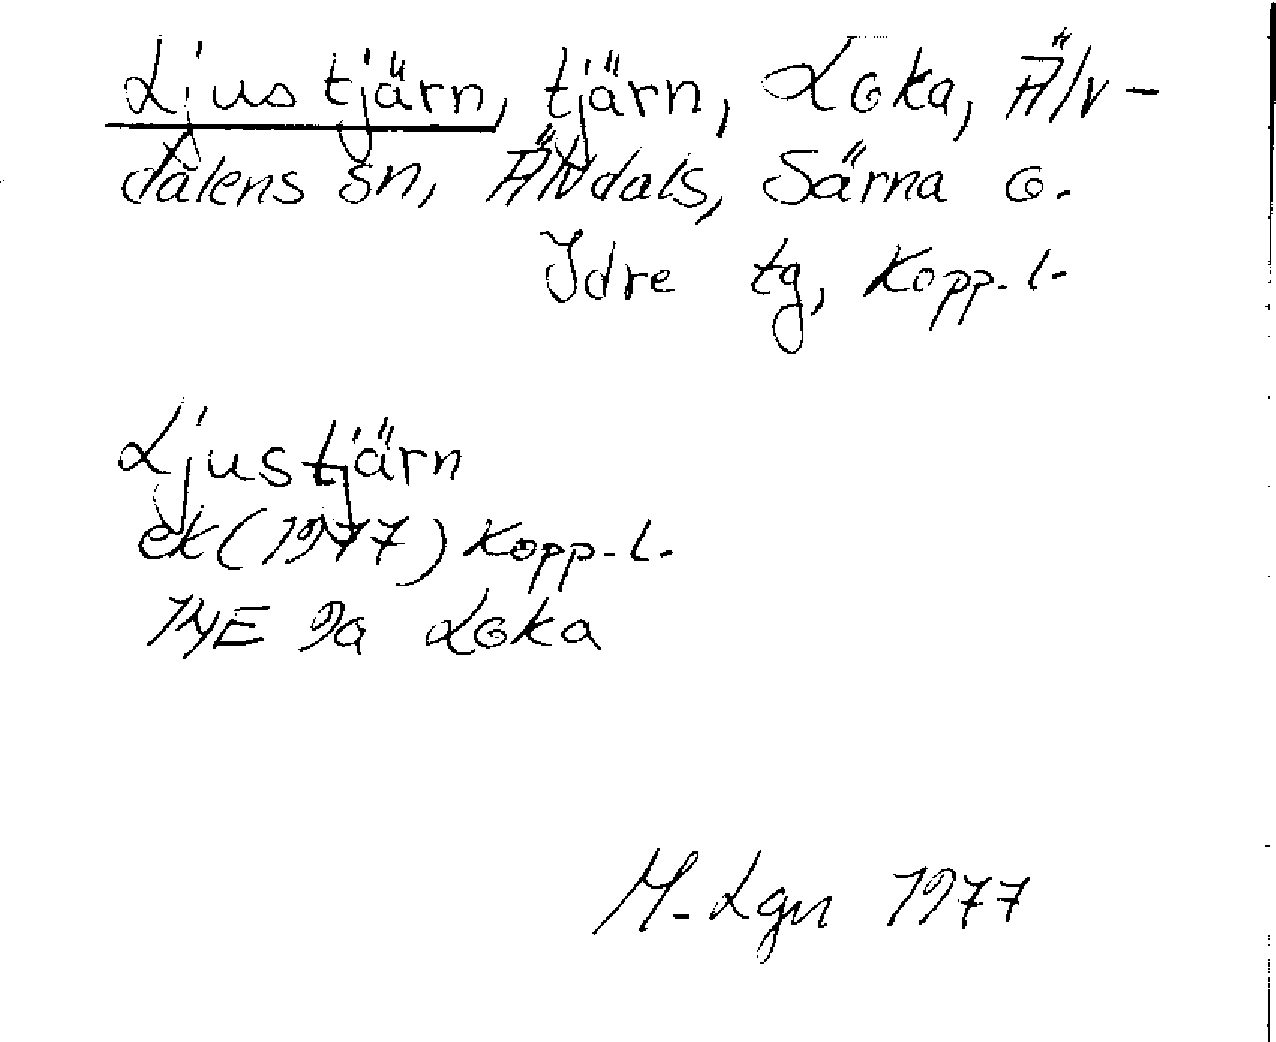 Ljustjärn, tjärn, Loka, Älv-
dalens sn, Älvdals, Särna o.
Idre tg, Kopp. l.
Ljustjärn
ek (1977) Kopp. l.
14E 9a Loka
M. Lgn 1977